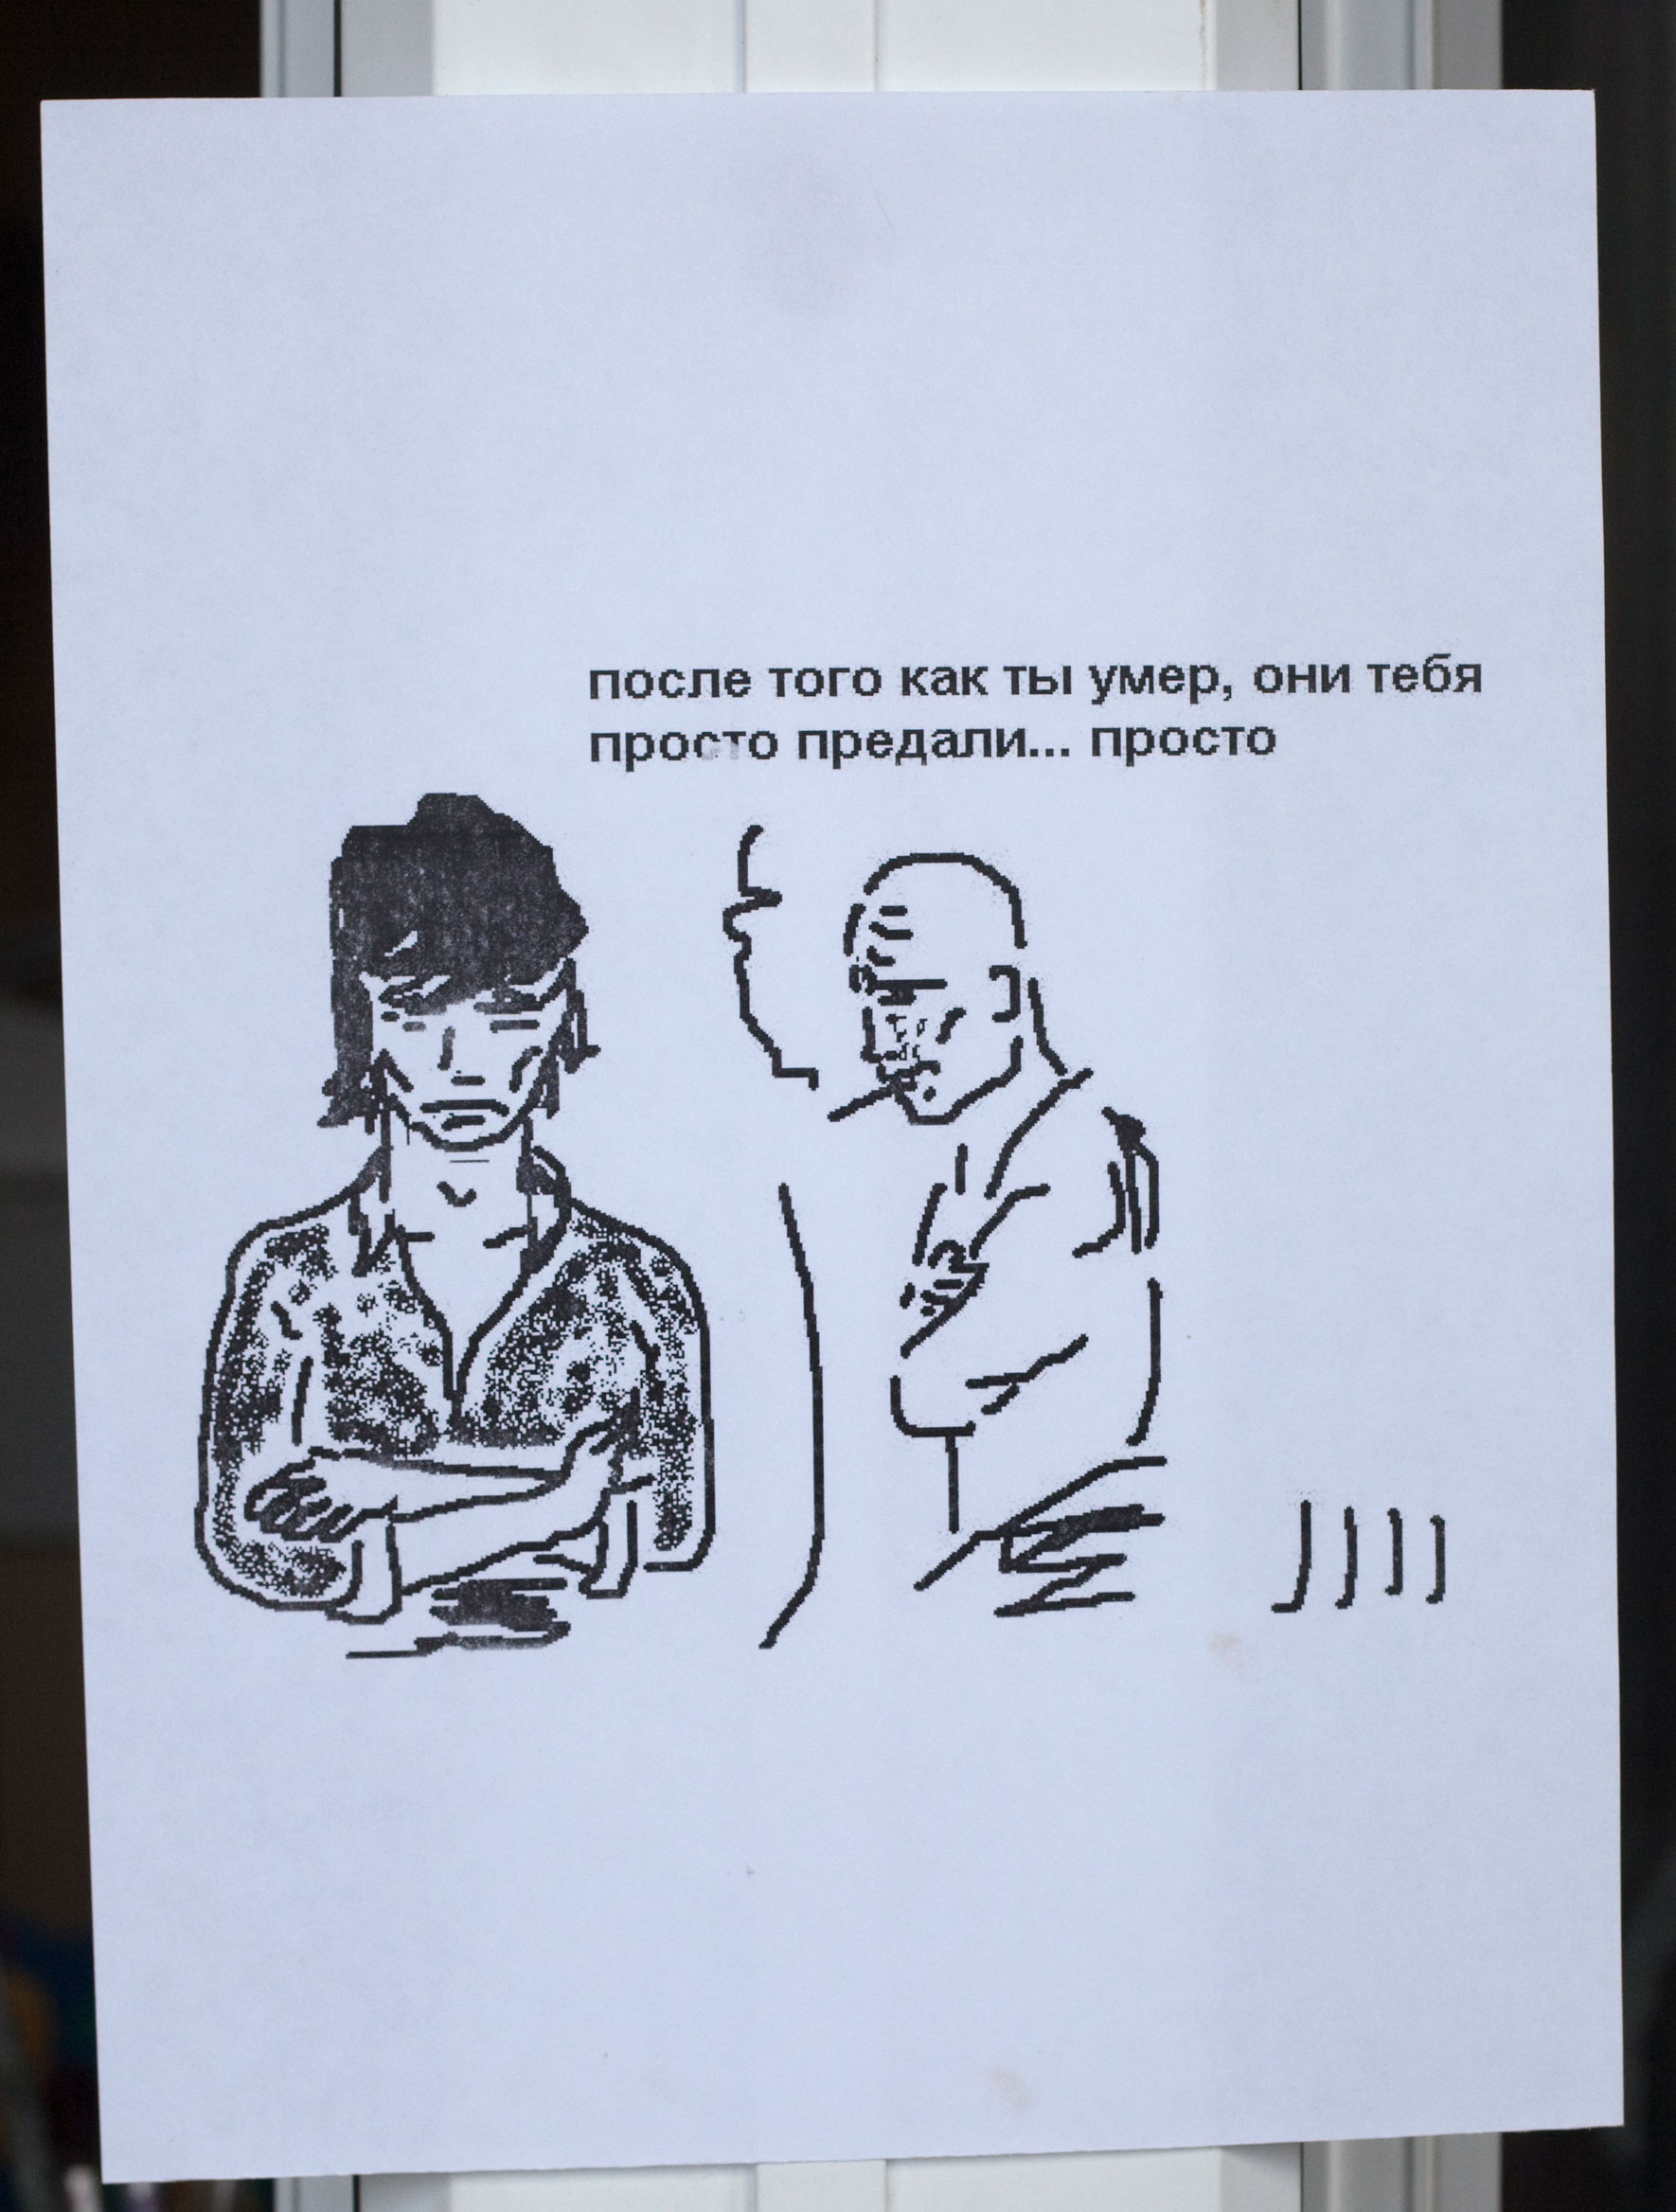 после того как ты умер, они тебя
просто предали... просто